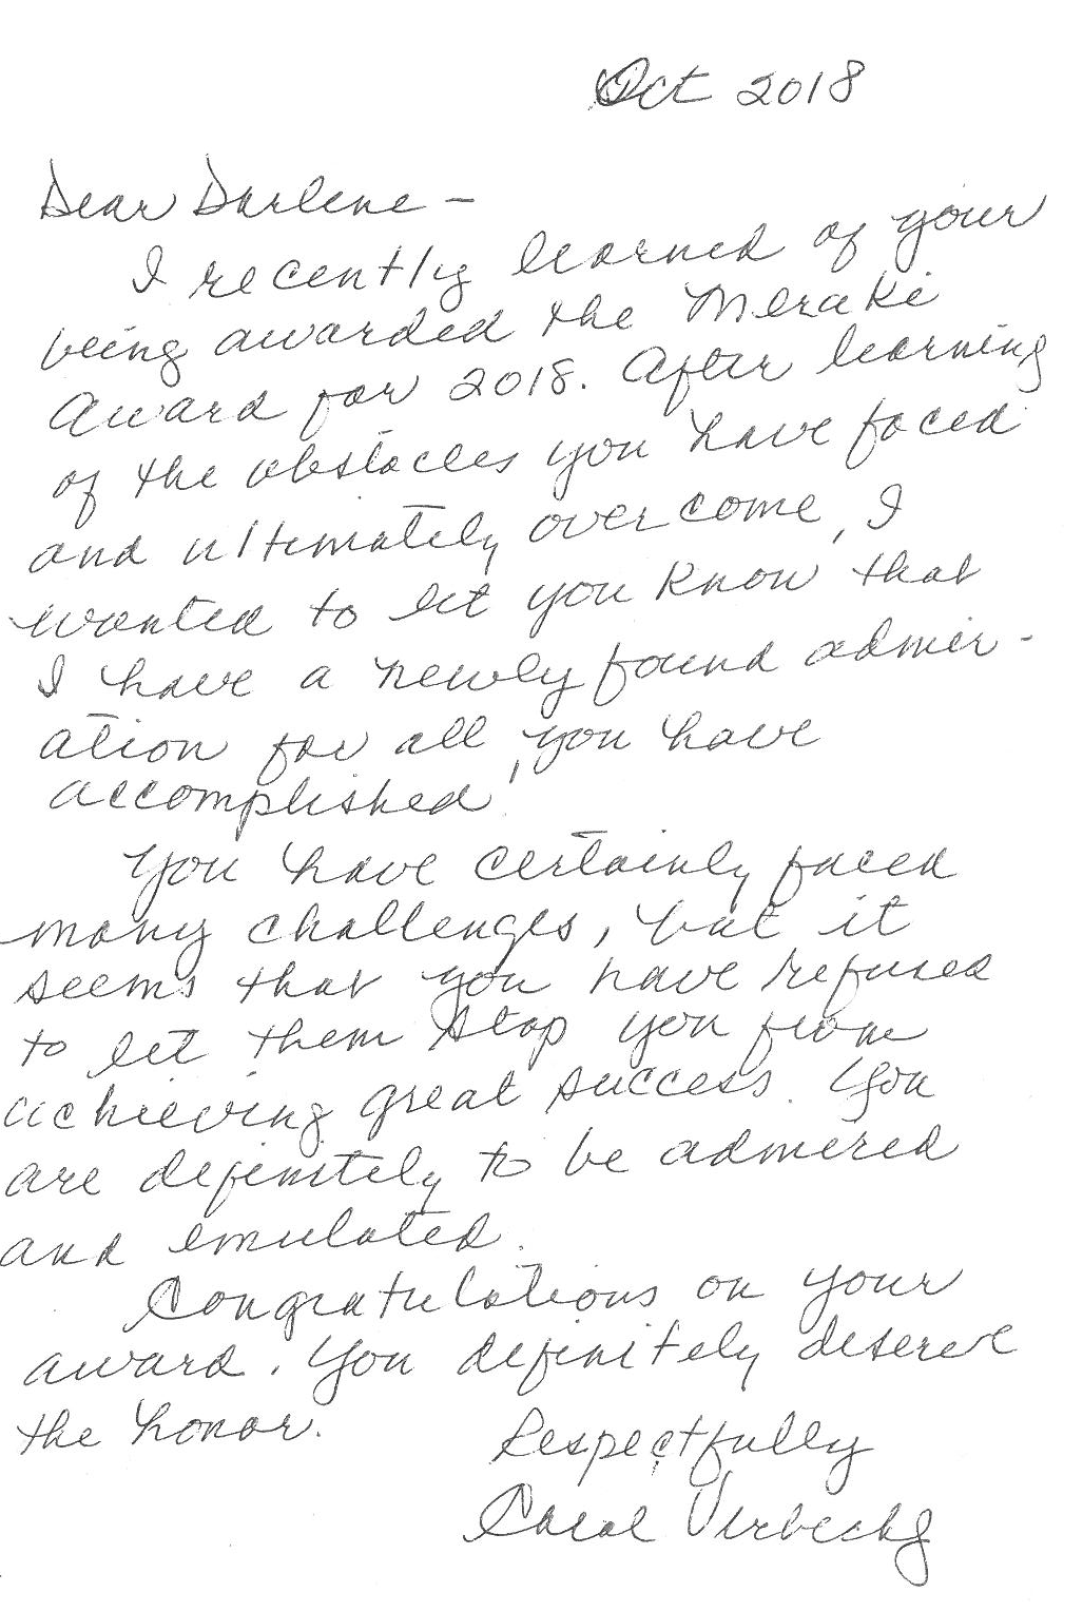 Oct 2018
Dear Darlene -
I recently learned of your
being awarded the Meraki
Award for 2018. After learning
of the obstacles you have faced
and ultimately overcome, I
wanted to let you know that
I have a newly found admir-
ation for all you have
accomplished!
You have certainly faced
many challenges, but it
seems that you have refused
to let them stop you from
achieving great success. You
are definitely to be admired
and emulated.
Congratulations on your
award. You definitely deserve
the honor.
Respectfully
Carol